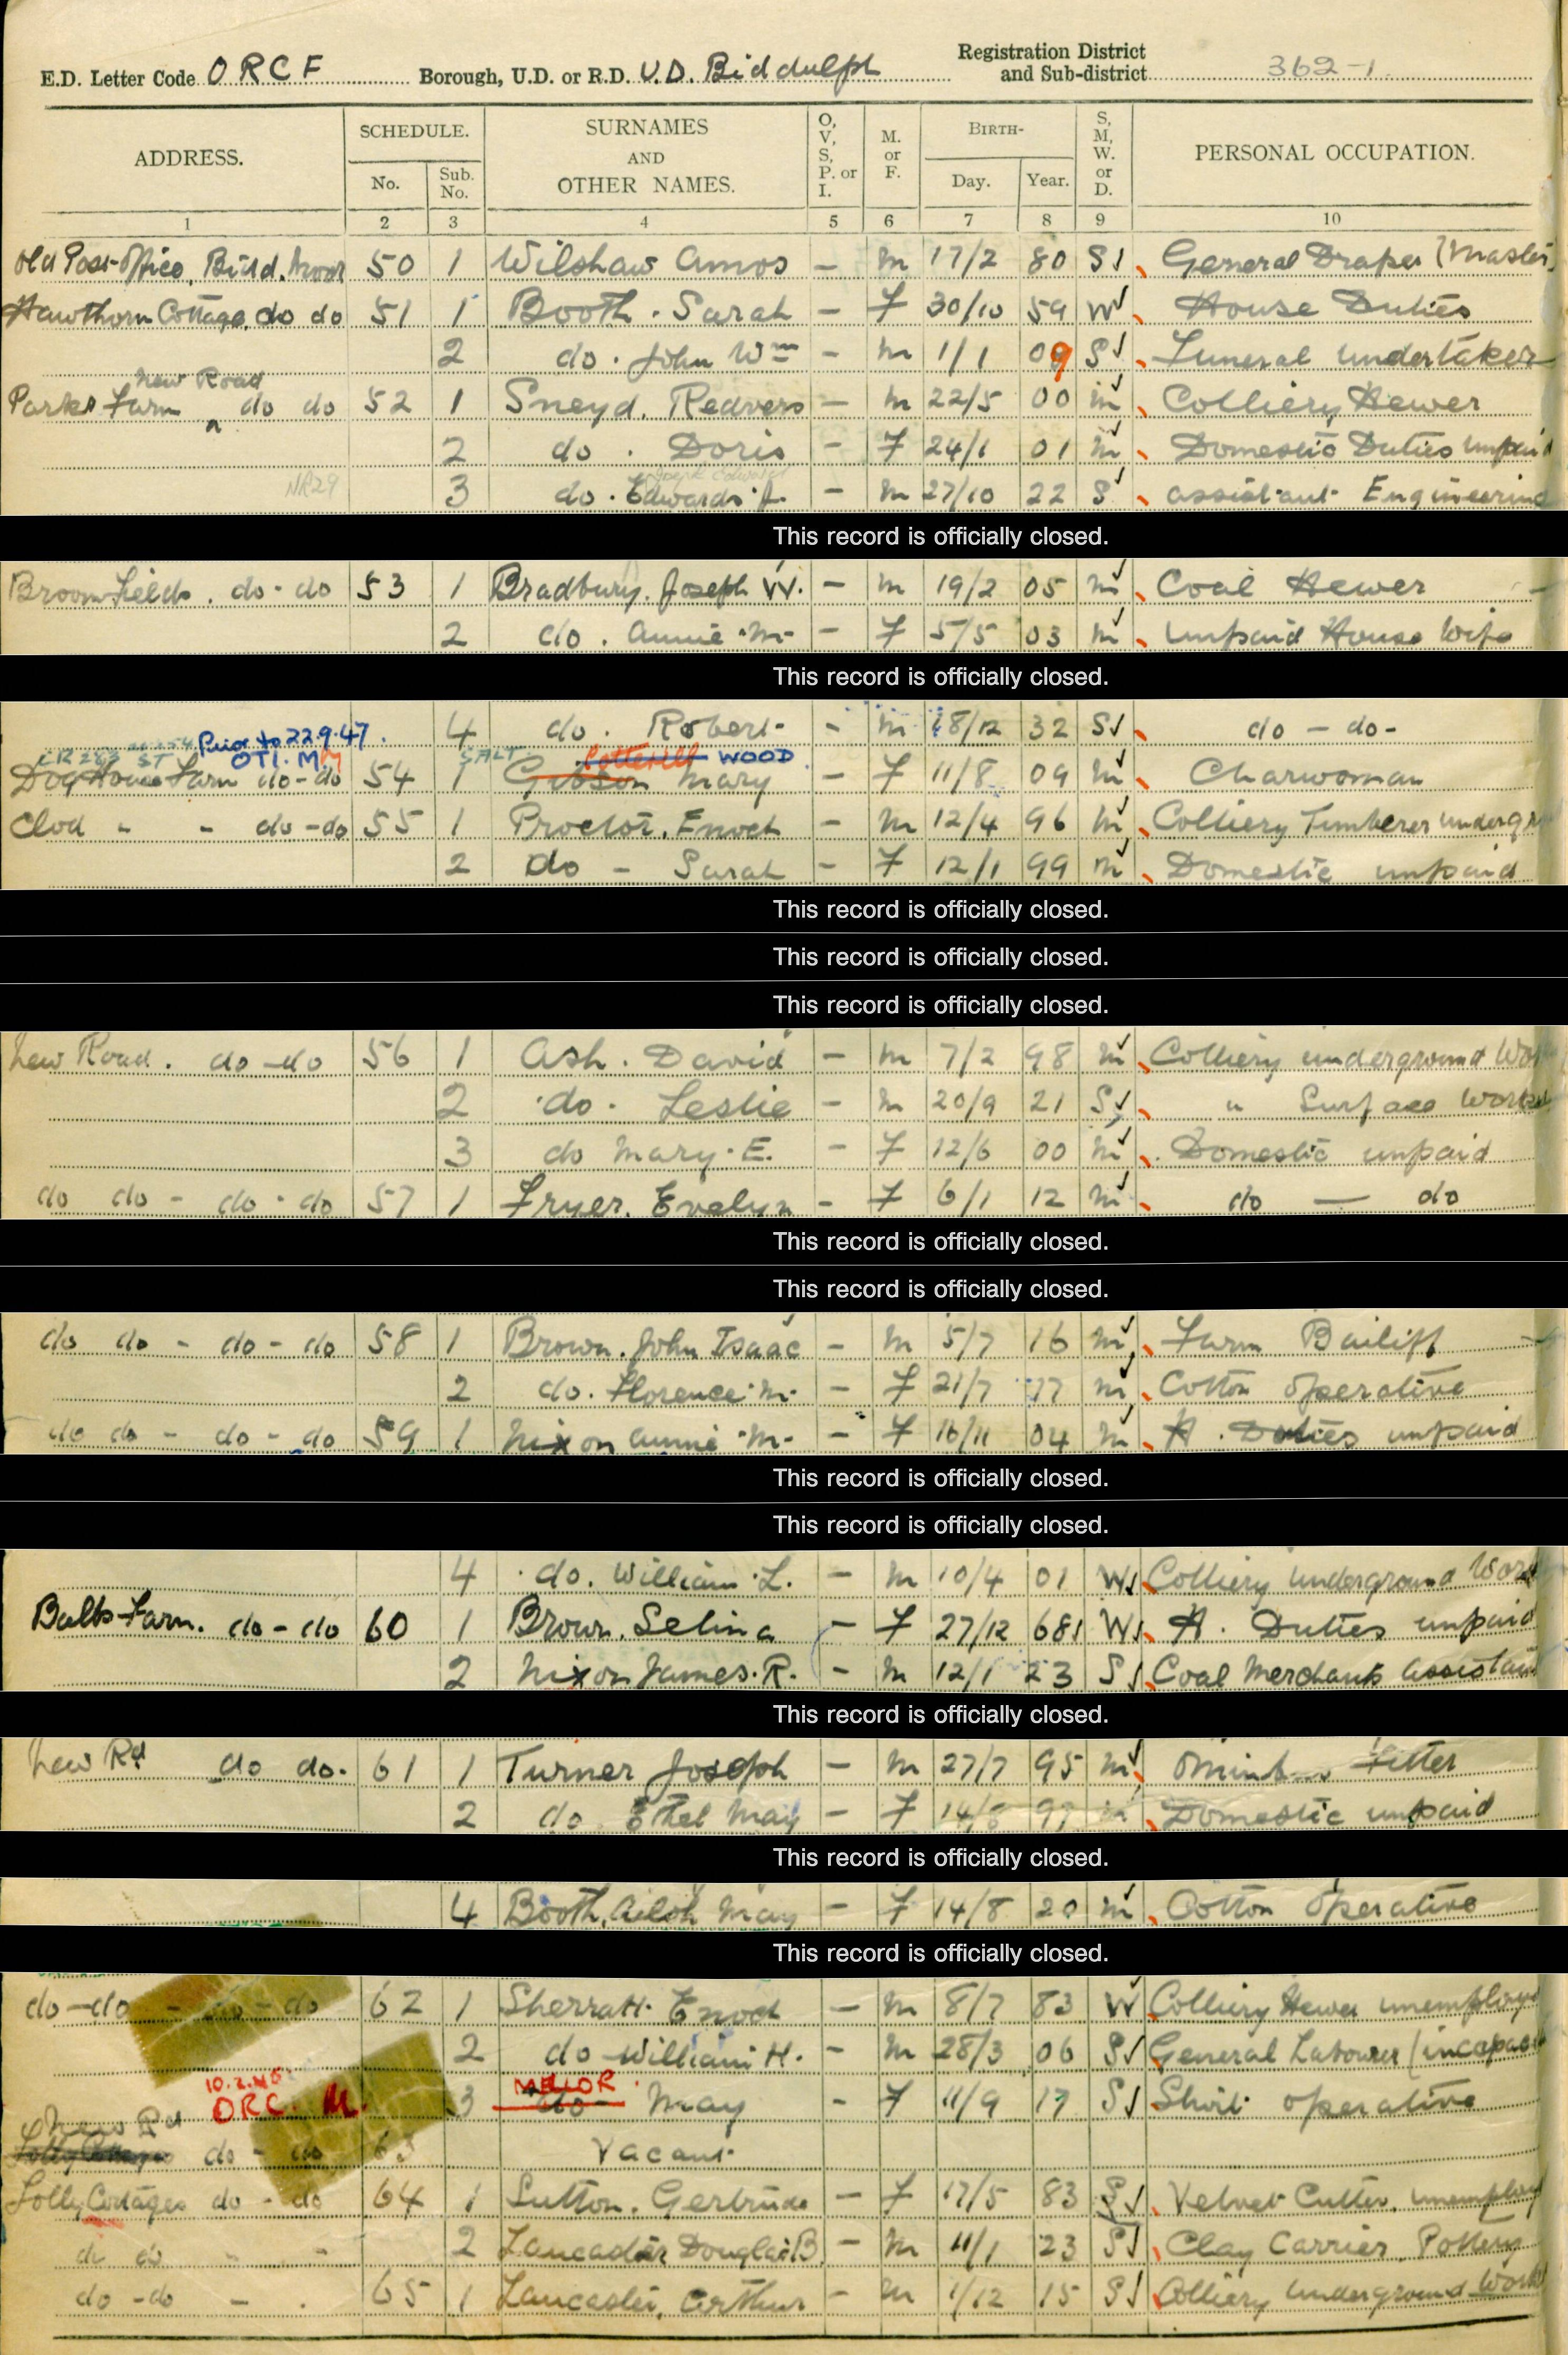 E.D. Letter Code ORCF Borough, U.D. or R.D. U.D. Biddulph Registration District and Sub-district 362-1
ADDRESS. SCHEDULE. SURNAMES AND OTHER NAMES. O, V, S, P. or I. M. or F. BIRTH- S, M, W. or D. PERSONAL OCCUPATION.
No. Sub. No. Day. Year.
1 2 3 4 5 6 7 8 9 10
Old Post Office, Bidd. Moor 50 1 Wilshaw Amos – M 17/2 80 S General Draper (Master)
Hawthorn Cottage, do do 51 1 Booth. Sarah – F 30/10 59 W House Duties
2 do. John Wm – M 1/1 09 S Funeral Undertaker
New Road
Parks Farm do do 52 1 Sneyd. Redvers – M 22/5 00 M Colliery Hewer
2 do. Doris – F 24/1 01 M Domestic Duties Unpaid
NR29 3 do. Edwards J. – M 27/10 22 S assistant Engineering
This record is officially closed.
Broomfields. do-do 53 1 Bradbury. Joseph W. – M 19/2 05 M Coal Hewer
2 do. Annie M. – F 5/5 03 M Unpaid House Wife
This record is officially closed.
4 do. Robert – M 18/12 32 S do – do-
Prior to 22.9.47.
OTI. M. SALT WOOD
Dog House Farm do-do 54 1 Gibson Mary – F 11/8 09 M Charwoman
Clod " - do-do 55 1 Proctor. Enoch – M 12/4 96 M Colliery Timberer undergr
2 do – Sarah – F 12/1 99 M Domestic unpaid
This record is officially closed.
This record is officially closed.
This record is officially closed.
New Road. do-do 56 1 Ash. David – M 7/2 98 M Colliery underground Wor
2 do. Leslie – M 20/9 21 S " Surface Worker
3 do Mary. E. – F 12/6 00 M Domestic unpaid
do do - do-do 57 1 Fryer. Evelyn – F 6/1 12 M do — do
This record is officially closed.
This record is officially closed.
do do - do-do 58 1 Brown. John Isaac – M 5/7 16 M Farm Bailiff
2 do. Florence M. – F 21/7 17 M Cotton operative
do do - do-do 59 1 Nixon Annie M. – F 16/11 04 M H. Duties unpaid
This record is officially closed.
This record is officially closed.
4 do. William L. – M 10/4 01 W Colliery underground Work
Balls Farm. do-do 60 1 Brown. Selina – F 27/12 68 W H. Duties unpaid
2 Nixon James. R. – M 12/1 23 S Coal Merchants assistant
This record is officially closed.
New Rd do do. 61 1 Turner Joseph – M 27/7 95 M Fitter
2 do Ethel May – F 14/ M Domestic unpaid
This record is officially closed.
4 Booth, May – F 14/8 20 M Cotton operative
This record is officially closed.
do-do - do-do 62 1 Sherratt. Enoch – M 8/7 83 W Colliery Hewer unemploye
2 do William H. – M 28/3 06 S General Labourer (incapaci
10.2.48
ORC. M. 3 MELLOR do May – F 11/9 17 S Shirt operative
New Rd
do - do 63 Vacant
Folly Cottages do - do 64 1 Sutton. Gertrude – F 17/5 83 S Velvet Cutter. Unemploy
do do - - 2 Lancaster Douglas B. – M 11/1 23 S Clay Carrier. Pottery
do-do - . 65 1 Lancaster. Arthur – M 1/12 15 S Colliery Underground Work